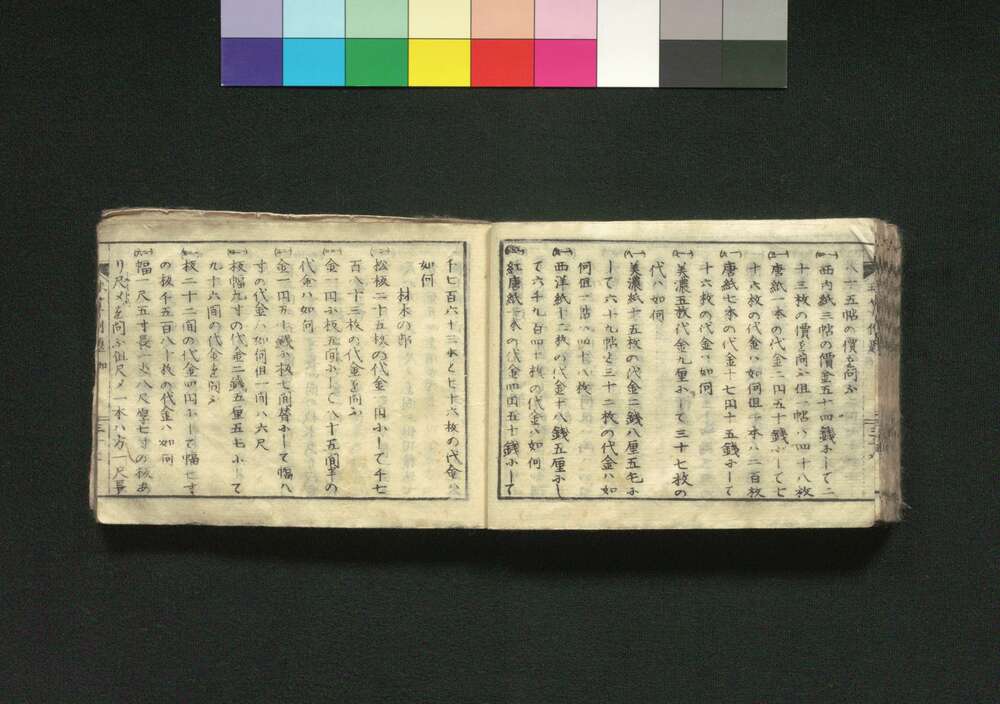 八十五帖の價を問ふ
西内紙三帖の價金五十四錢ふして二
十三枚の價を問ふ但一帖ハ四十八枚
唐紙一本の代金二円五十錢ふして七
十六枚の代金ハ如何但一本ハ二百枚
唐紙七本の代金十七円十五錢ふして
十六枚の代金ハ如何
美濃五枚代金九厘ふして三十七枚の
代ハ如何
美濃紙十五枚の代金二錢八厘五毛ふ
して六十九帖と三十二枚の代金ハ如
何但一帖ハ四十八枚
西洋紙十二枚の代金十八錢五厘ふし
て六千九百四十枚の代金ハ如何
紅唐紙 本の代金四円五十錢ふして
千七百六十三本と七十六枚の代金ハ
如何
材木の部
松板二十五枚の代金 円ふして千七
百八十三枚の代金を問ふ
金一円ふ板五間ふして八十五間半の
代金ハ如何
金一円五十錢ふ板七間替ふして幅八
寸の代金ハ如何但一間ハ六尺
板幅九寸の代金二錢五厘五毛ふして
九十六間の代金を問ふ
板二十二間の代金四円ふして幅七寸
の板千五百八十枚の代金ハ如何
幅一尺五寸長一丈八尺厚七寸の板あ
り尺〆を問ふ但尺〆一本ハ方一尺長